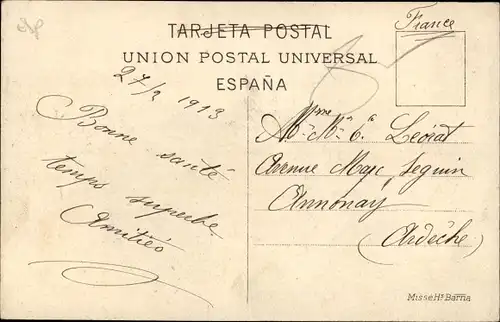 France
TARJETA POSTAL
UNION POSTAL UNIVERSAL
ESPAÑA
27/2 1913
Bonne santé
temps superbe
Amitiés
Leorat
Avenue Marc Seguin
Annonay
(Ardèche)
Missé Hs Barna